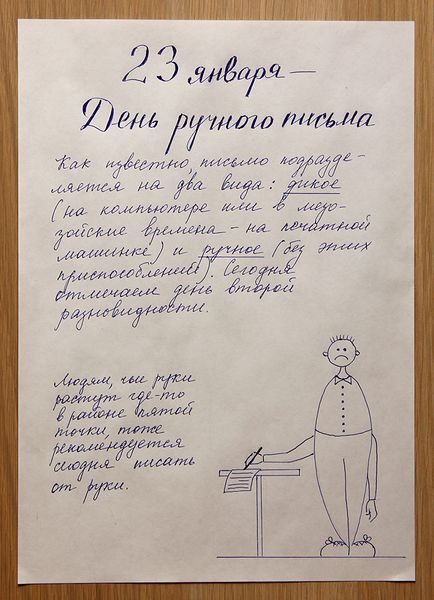 23 января —
День ручного письма
Как известно, письмо подразде-
ляется на два вида: дикое
(на компьютере или в мезо-
зойские времена - на печатной
машинке) и ручное (без этих
приспособлений). Сегодня
отмечаем день второй
разновидности.
Людям, чьи руки
растут где-то
в районе пятой
точки, тоже
рекомендуется
сегодня писать
от руки.